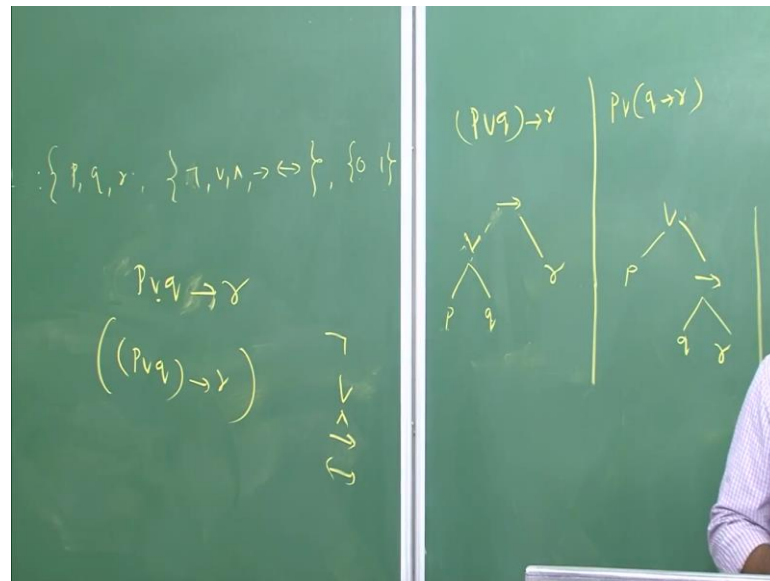 : { P, q, r, { ¬, ∨, ∧, → ↔ }, { 0 1 }
P∨q → r
((P∨q) → r)
¬
∨
∧
→
↔
(P∨q) → r
→
∨ r
P q
P∨(q→r)
∨
P →
q r